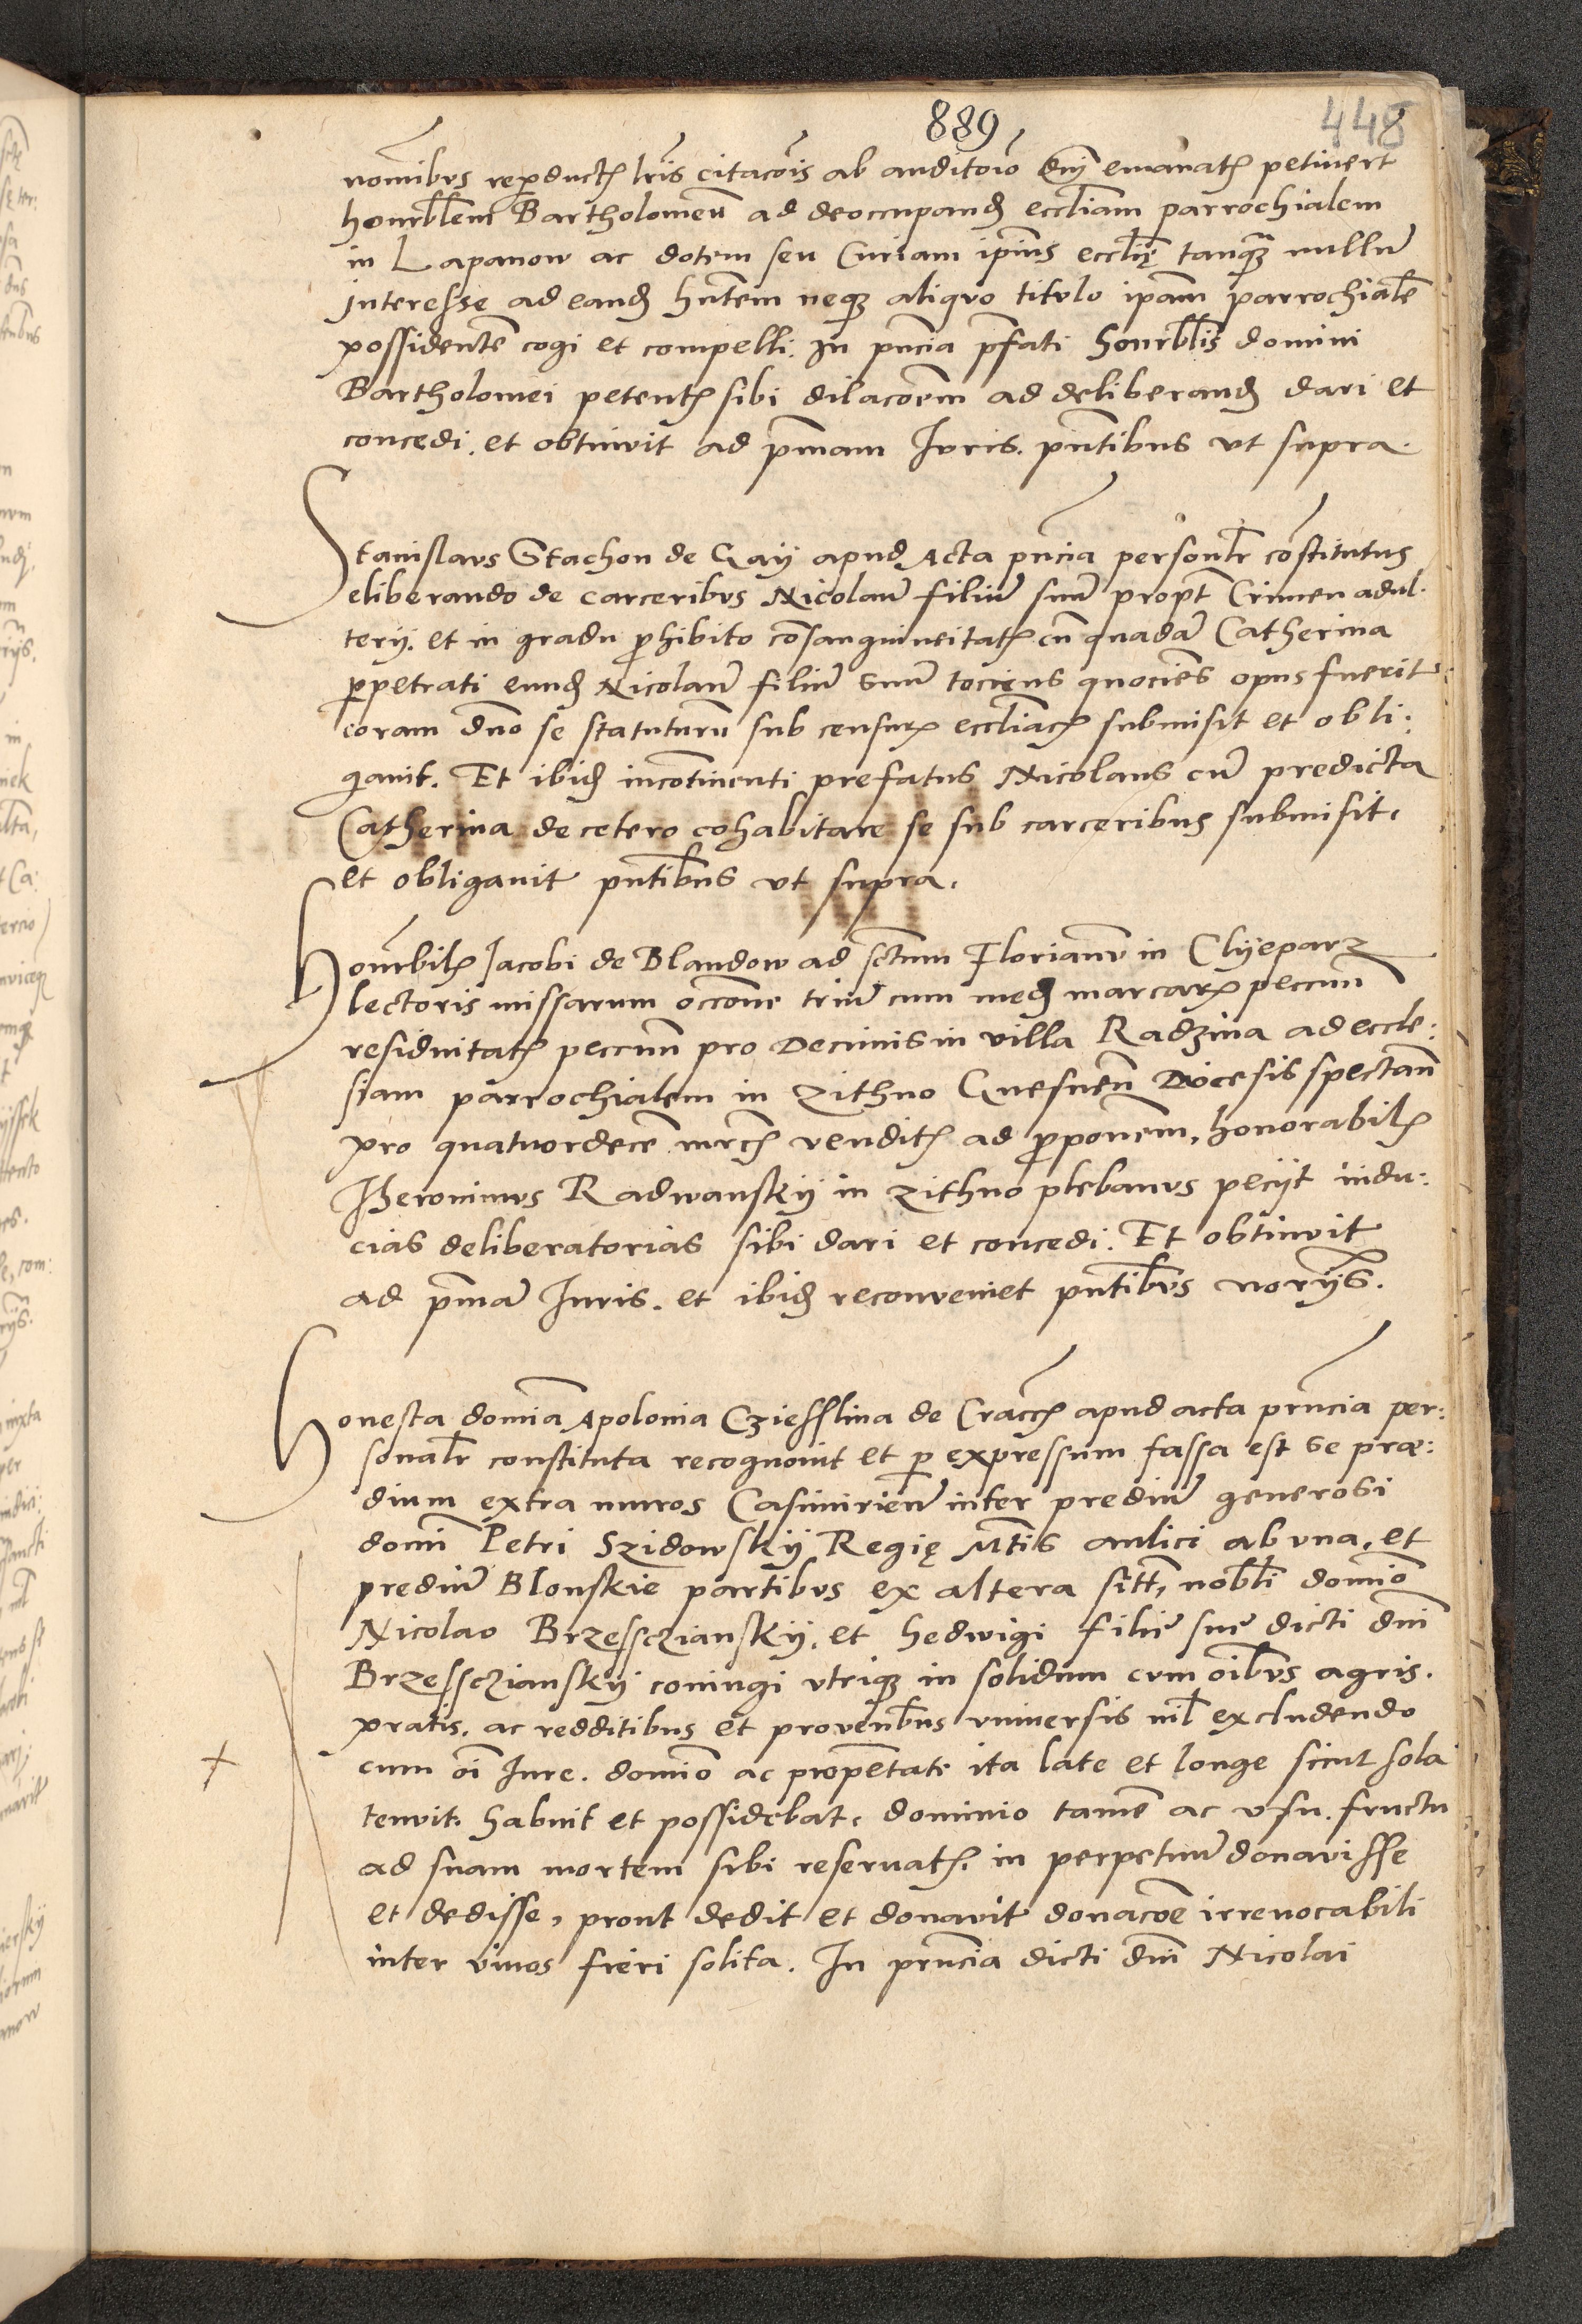 889
448
nomībus repductꝭ lris citacōis ab auditorō dnj emanatꝭ petiuert
honrblem Bartholomeū ad deoccupandꝭ eccliam parrochialem
in Lapanow ac dotem seu Curiam ipius ecclię tanqꝫ nullū
interesse ad eandꝭ hntem neqꝫ aliquo titulo ipam parrochialē
possidentē cogi et compelli. In pncia pfati honrblis domini
Bartholomei petentꝭ sibi dilacoem ad deliberandꝭ dari et
concedi. et obtinuit ad pmam Iuris. pntibus vt supra.
Stanislaus Stachon de Gay apud Acta pncia personlr cōstitutus
eliberando de carceribus Nicolaū filiū suū propt Crimen adul.
terij. et in gradu phibito cōsanguineitatꝭ cū quadā Catherina
ppetrati eundꝭ Nicolaū filiū suū tociens quociēs opus fuerit
coram dno se statuturū sub censurꝭ eccliacꝭ submisit et obli:
gauit. Et ibidꝭ incōtinenti prefatus Nicolaus cū predicta
Catherina de cetero cohabitare se sub carceribus submisit.
et obligauit pntibus vt supra.
Honrabilꝭ Jacobi de Blandow ad sctum Florianū in Clyeparz
lectoris missarum occōne triū cum medꝭ marcarꝭ peccun
residuitatꝭ peccun pro Decimis in villa Radzina ad eccle:
siam parrochialem in Zithno Gnesnen Diocesis spectan
pro quatuordecē mrcꝭ venditꝭ ad pponem, honorabilꝭ
Iheronimus Radwanskij in Zithno plebanus pecijt indu:
cias deliberatorias sibi dari et concedi. Et obtinuit
ad pmā Iuris. et ibidꝭ reconueniet pntibus norijs.
Honesta domīa Apolonia Cziesslina de Craccꝭ apud acta prncia per:
sonalr constituta recognouit et p expressum fassa est se præ:
dium extra muros Casimirien inter prediū generosi
domi Petri Szidowskij Regię Mtis aulici ab vna, et
prediū Blonskie partibus ex altera sitt, nobli domio
Nicolao Brzessczianskij, et Hedwigi filie sue dicti dni
Brzessczianskij coniugi vtriqꝫ in solidum cum oibus agris.
pratis. ac redditibus et prouenbus vniuersis nil excludendo
cum oi Iure. domio ac propetate ita late et longe sicut sola
tenuit. habuit et possidebat. dominio tamē ac vsu. fructu
ad suam mortem sibi reseruatꝭ. in perpetuū donauisse
et dedisse, prout dedit et donauit donacoe irreuocabili
inter viuos fieri solita. In prncia dicti dni Nicolai